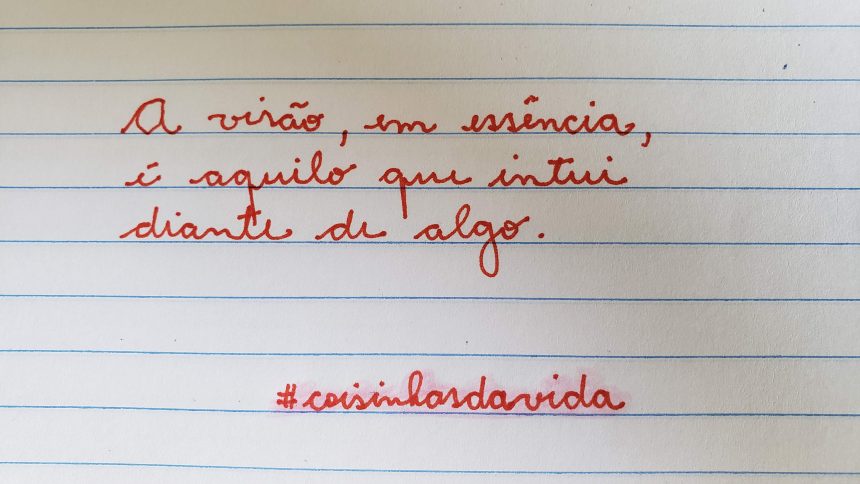 A visão, em essência,
é aquilo que intui
diante de algo.
#coisinhasdavida